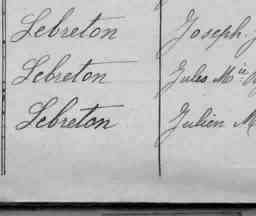 Lebreton Joseph
Lebreton Jules Mie
Lebreton Julien M